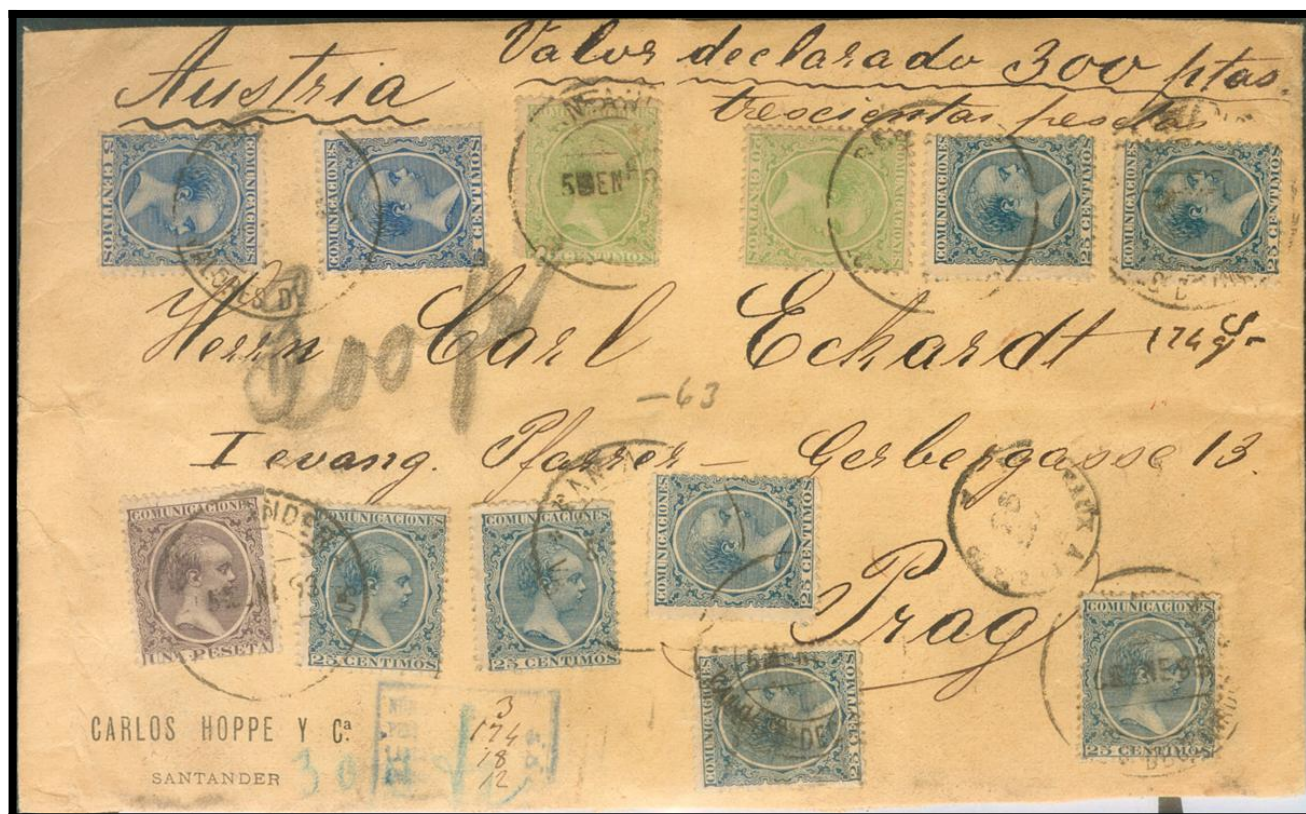 Austria
Valor declarado 300 ptas.
trescientas pesetas
COMUNICACIONES
CENTIMOS
COMUNICACIONES
CENTIMOS
CENTIMOS
5 EN
COMUNICACIONES
CENTIMOS
COMUNICACIONES
25 CENTIMOS
COMUNICACIONES
25 CENTIMOS
VALORES D
Herrn Carl Echardt 174 gr
—63
I evang. Pfarrer — Gerbergasse 13.
Prag
COMUNICACIONES
UNA PESETA
COMUNICACIONES
25 CENTIMOS
COMUNICACIONES
25 CENTIMOS
COMUNICACIONES
25 CENTIMOS
COMUNICACIONES
25 CENTIMOS
COMUNICACIONES
25 CENTIMOS
CARLOS HOPPE Y Cª
SANTANDER
3
174
18
12